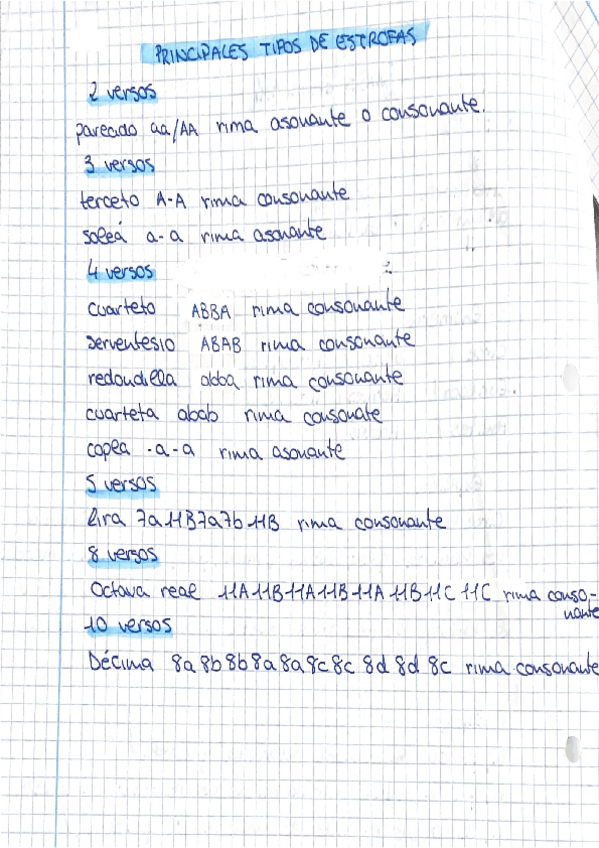 PRINCIPALES TIPOS DE ESTROFAS
2 versos
pareado aa/AA rima asonante o consonante.
3 versos
terceto A-A rima consonante
soleá a-a rima asonante
4 versos
cuarteto ABBA rima consonante
serventesio ABAB rima consonante
redondilla abba rima consonante
cuarteta abab rima consonate
copla -a-a rima asonante
5 versos
lira 7a 11B 7a 7b 11B rima consonante
8 versos
Octava real 11A 11B 11A 11B 11A 11B 11C 11C rima conso-
nante
10 versos
Décima 8a 8b 8b 8a 8a 8c 8c 8d 8d 8c rima consonante